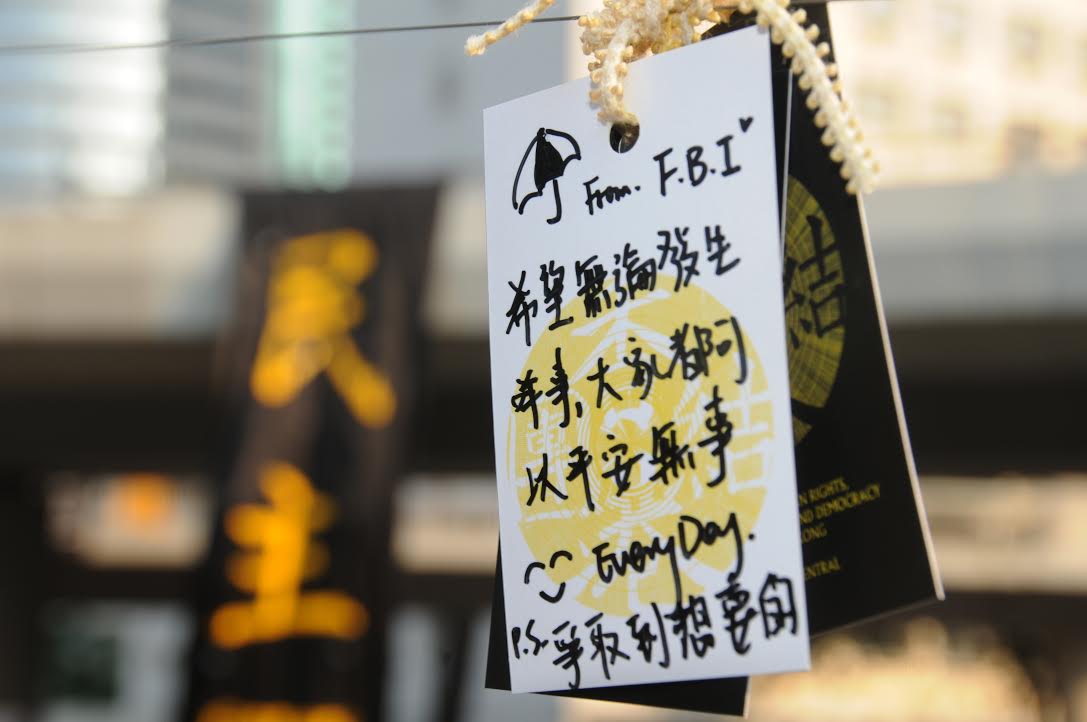 From. F.B.I
希望無論發生
咩事,大家都可
以平安無事
EveryDay.
P.S. 爭取到想要的
N RIGHTS,
ND DEMOCRACY
ONG
ENTRAL